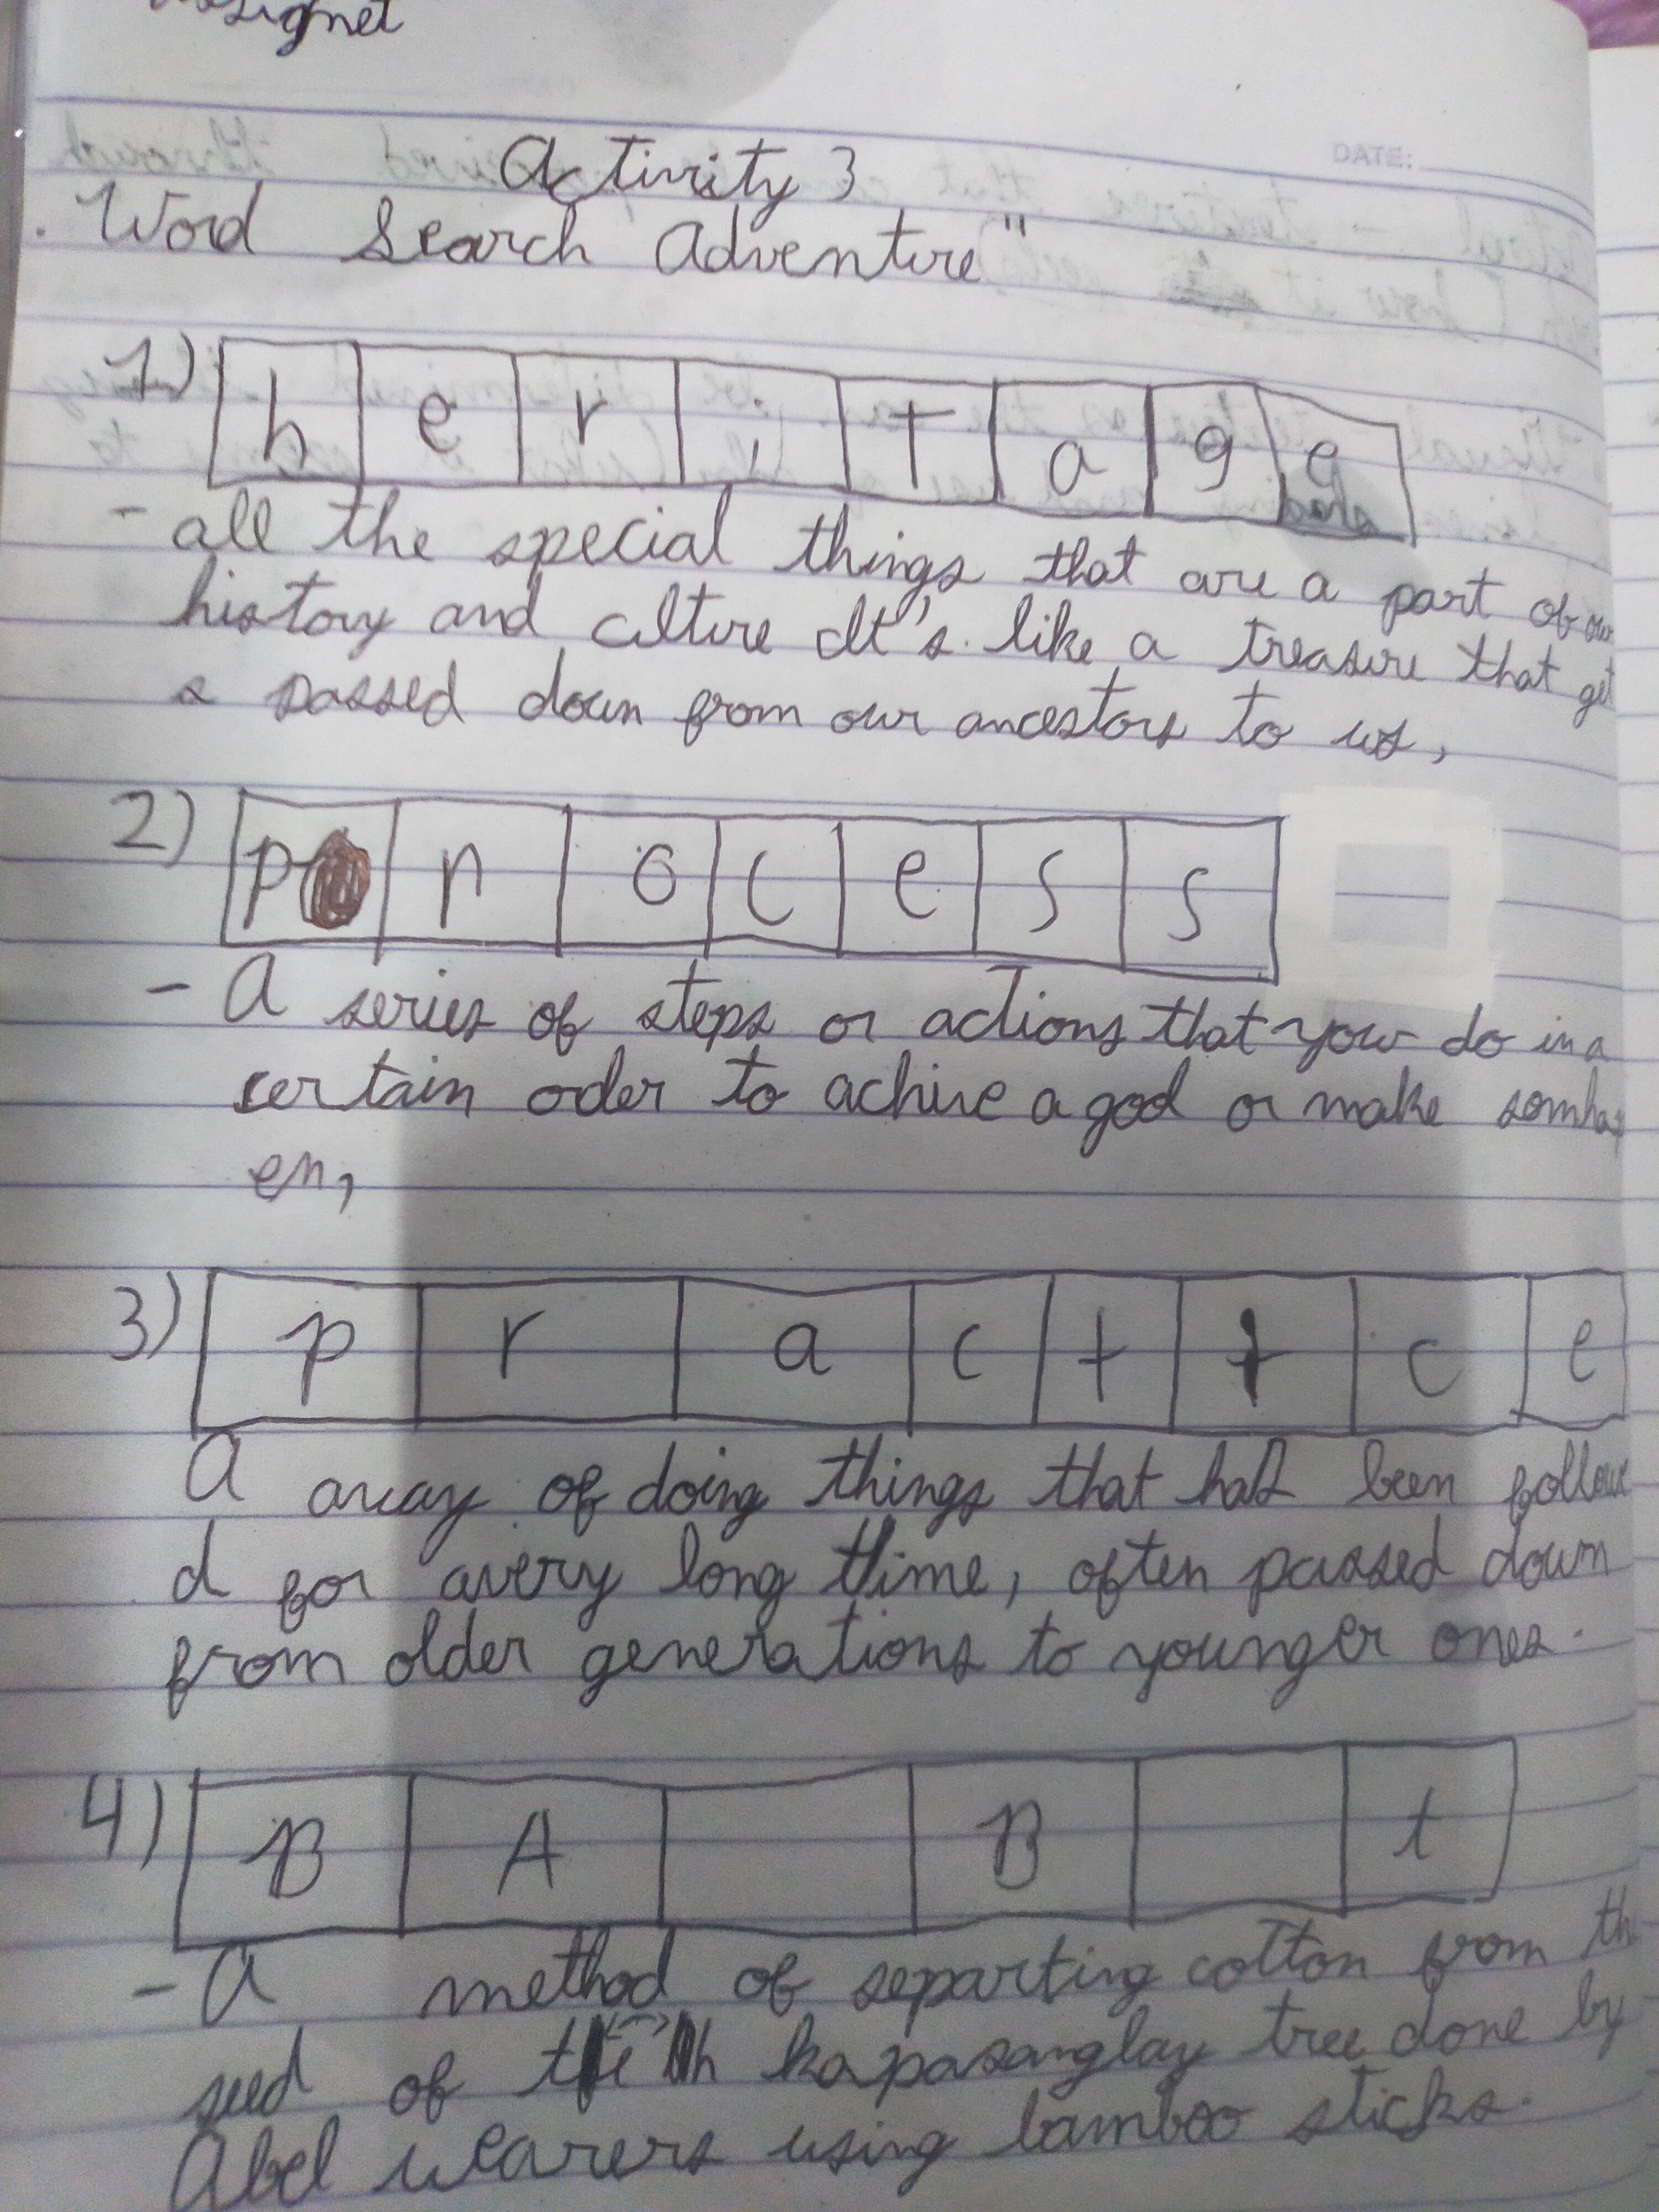 Activity 3
Word Search Adventure"
DATE:
1) h e r i t a g e
- all the special things that are a part of our
history and culture It's like a treasure that get
s passed down from our ancestors to us,
2) p r o c e s s
- A series of steps or actions that you do in a
certain order to achive a god or make somha
en,
3) p r a c t i c e
A away of doing things that has been followe
d for avery long time, often passed down
from older generations to younger ones.
4) B A B t
- A method of separting cotton from th
seed of kapasanglay tree done by
Abel wearers using bamboo sticks.